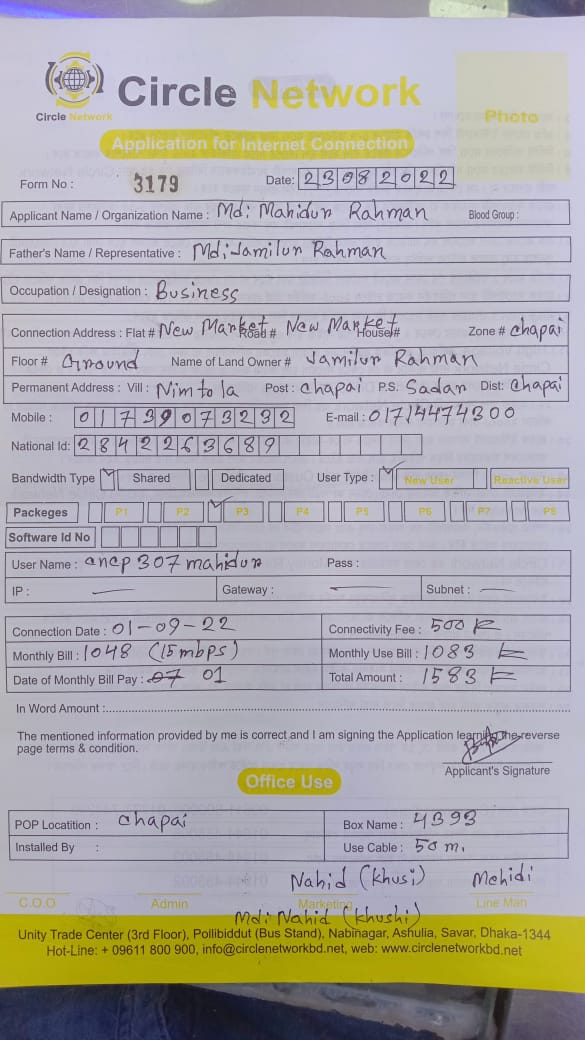 Circle Network
Circle Network
Photo
Application for Internet Connection
Form No : 3179 Date: 23082022
Applicant Name / Organization Name : Md: Mahidur Rahman Blood Group :
Father's Name / Representative : Md: Jamilur Rahman
Occupation / Designation : Business
Connection Address : Flat # New Market Road # New Market House# Zone # chapai
Floor # Ground Name of Land Owner # Jamilur Rahman
Permanent Address : Vill : Nimtola Post : chapai P.S. Sadar Dist: chapai
Mobile : 01739073232 E-mail : 01714474300
National Id: 2842263689
Bandwidth Type ✓ Shared Dedicated User Type : ✓ New User Reactive User
Packeges P1 P2 ✓ P3 P4 P5 P6 P7 P8
Software Id No
User Name : cncp307mahidur Pass :
IP : — Gateway : — Subnet : —
Connection Date : 01-09-22 Connectivity Fee : 500
Monthly Bill : 1048 (15mbps) Monthly Use Bill : 1083
Date of Monthly Bill Pay : 07 01 Total Amount : 1583
In Word Amount :
The mentioned information provided by me is correct and I am signing the Application learning the reverse
page terms & condition.
Applicant's Signature
Office Use
POP Locatition : chapai Box Name : 4393
Installed By : Use Cable : 50 m.
Nahid (Khusi) Mehidi
C.O.O Admin Marketing Line Man
Md: Nahid (khushi)
Unity Trade Center (3rd Floor), Pollibiddut (Bus Stand), Nabinagar, Ashulia, Savar, Dhaka-1344
Hot-Line: + 09611 800 900, info@circlenetworkbd.net, web: www.circlenetworkbd.net